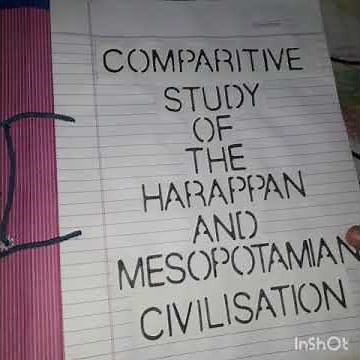 COMPARITIVE
STUDY
OF
THE
HARAPPAN
AND
MESOPOTAMIAN
CIVILISATION
InShOt